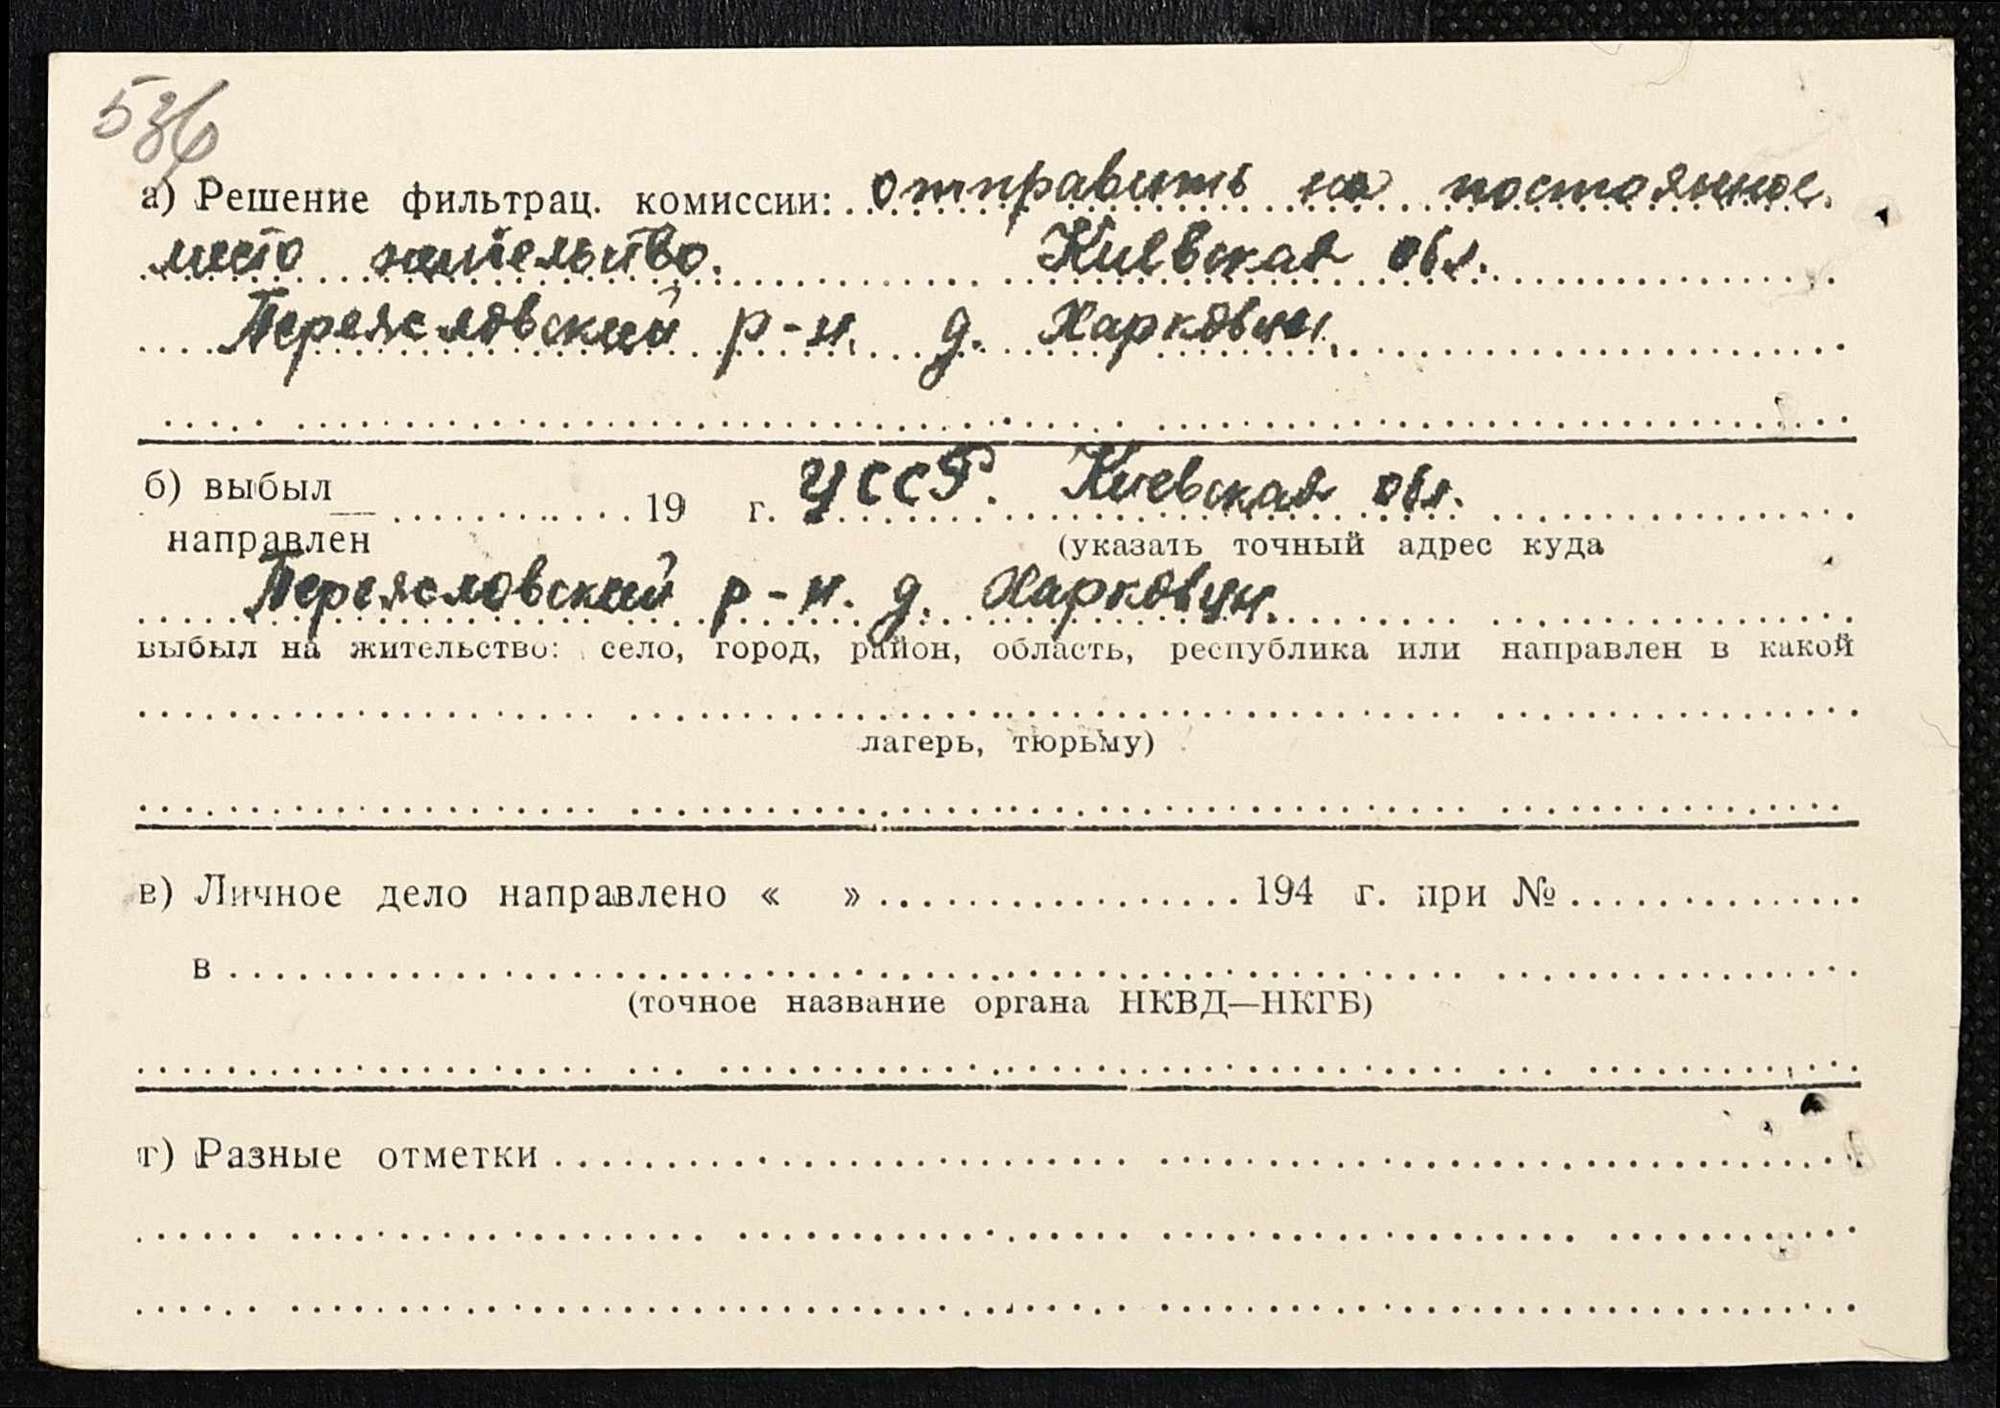 536
а) Решение фильтрац. комиссии: отправить на постоянное
место жительство. Киевская обл.
Переясловский р-н. д. Харковцы.
б) выбыл 19 г. УССР. Киевская обл.
направлен (указать точный адрес куда
Переясловский р-н. д. Харковци.
выбыл на жительство: село, город, район, область, республика или направлен в какой
лагерь, тюрьму)
в) Личное дело направлено « » 194 г. при №
в
(точное название органа НКВД—НКГБ)
г) Разные отметки